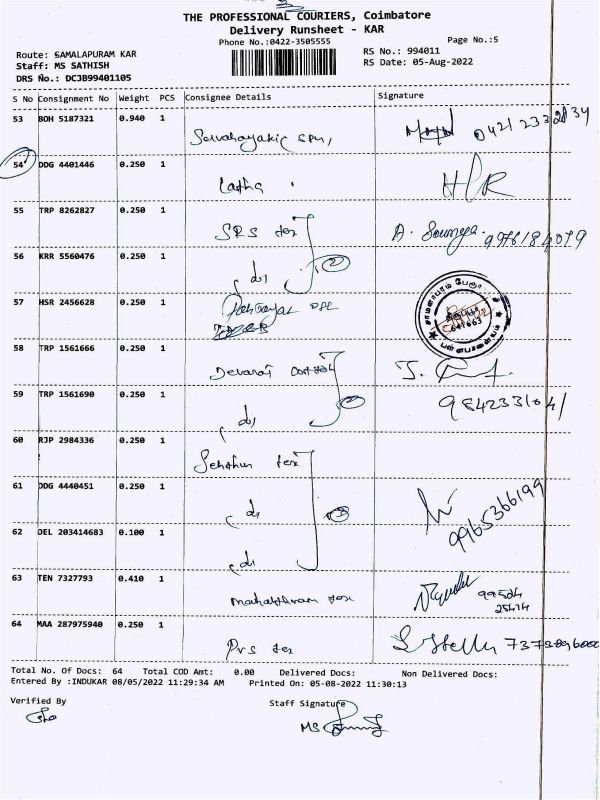 THE PROFESSIONAL COURIERS, Coimbatore
Delivery Runsheet - KAR
Phone No.:0422-3505555
Page No.:5
Route: SAMALAPURAM KAR
RS No.: 994011
Staff: MS SATHISH
RS Date: 05-Aug-2022
DRS No.: DCJB99401105
S No Consignment No Weight PCS Consignee Details Signature
53 BOH 5187321 0.940 1
54 DDG 4401446 0.250 1 Latha
55 TRP 8262827 0.250 1 SRS tex A. Sowmya 9976184079
56 KRR 5560476 0.250 1 do 2
57 HSR 2456628 0.250 1
சாமளாபுரம்
641663
58 TRP 1561666 0.250 1 Devaraj
59 TRP 1561690 0.250 1 do 2
60 RJP 2984336 0.250 1 tex
61 DDG 4440451 0.250 1 do 3 9965366199
62 DEL 203414683 0.100 1 do
63 TEN 7327793 0.410 1 tex
64 MAA 287975940 0.250 1 Pvs tex S. Stella
Total No. Of Docs: 64 Total COD Amt: 0.00 Delivered Docs: Non Delivered Docs:
Entered By :INDUKAR 08/05/2022 11:29:34 AM Printed On: 05-08-2022 11:30:13
Verified By Staff Signature
MS